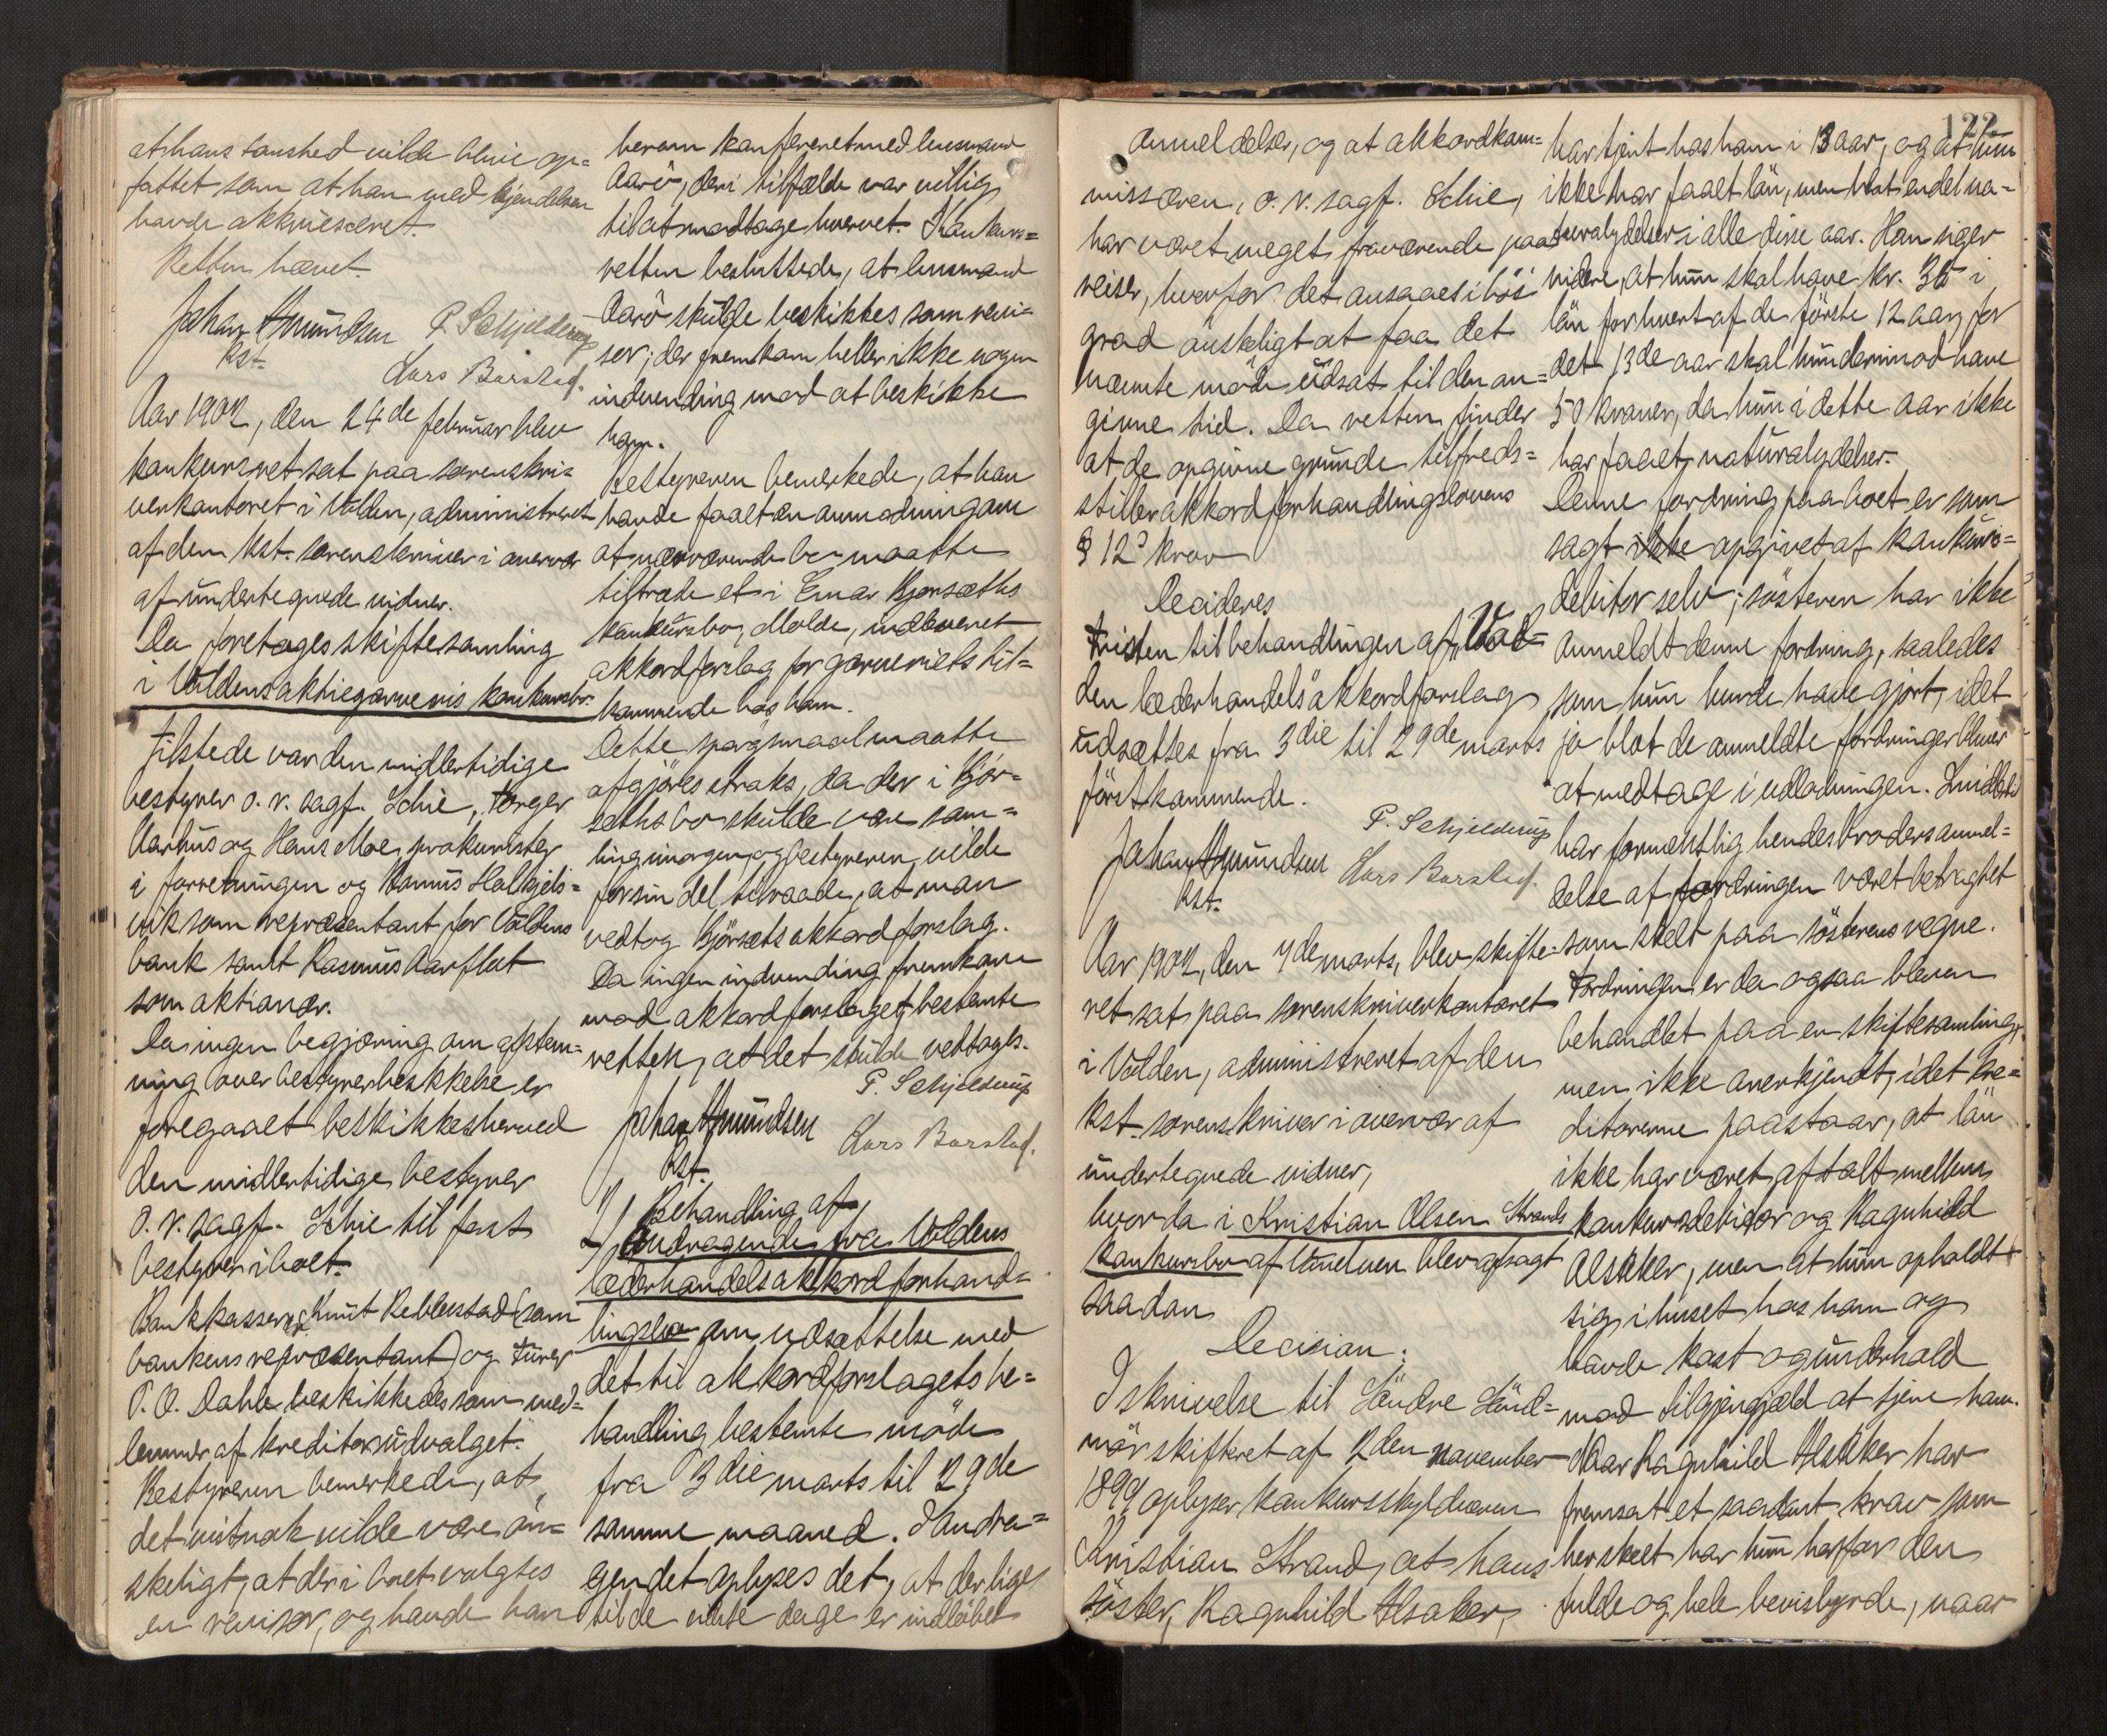 at hans taushed vilde blive op=
fattet som at han med kjendelsen
havde akkviesceret.
Retten hævet.
Johan Amundsen P. Schjelderup
kst. Lars Barstad.
Aar 1902, den 24de februar blev
konkursret sat paa sorenskri=
verkontoret i Volden, administreret
af den kst. sorenskriver i overvær
af undertegnede vidner.
Da foretages skiftesamling
i Voldens aktiegarveris konkursbo.
Tilstede var den midlertidige
bestyrer o. r. sagf. Schie, Torger
Aarhus og Hans Moe, prokurister
i forretningen og Rasmus Halkjels=
vik som repræsentant for Voldens
bank samt Rasmus Aarflot
som aktionær.
Da ingen begjæring om afstem=
ning over bestyrerbeskikkelse er
foregaaet beskikkes herved
den midlertidige bestyrer
o. r. sagf. Schie til fast
bestyrer i boet.
Bankkasserer Knut Rebbestad (som
bankens repræsentant) og
P. O. Dahle beskikkedes som med=
lemmer af kreditorudvalget.
Bestyreren bemerkede, at
det nok vilde være øn=
skeligt, at der i boet valgtes
en revisor, og havde han
herom konfereret med lensmand
Aarö, der i tilfælde var villig
til at modtage hvervet. Konkurs=
retten besluttede, at lensmand
Aarö skulde beskikkes som revi=
sor; der fremkom heller ikke nogen
indvending mod at beskikke
ham.
Bestyreren bemerkede, at han
havde faaet en anmodning om
at nærværende bo maatte
tiltræde et i Einar Kjørsæths
konkursbo, Molde, indleveret
akkordforslag for garveriets til=
kommende hos ham.
Dette spørgsmaal maatte
afgjøres straks, da der i Kjør=
sæths bo skulde være sam=
ling imorgen, og bestyreren vilde
for sin del tilraade, at man
vedtog Kjørsæths akkordforslag.
Da ingen indvending fremkom
mod akkordforslaget bestemte
retten, at det skulde vedtages.
P. Schjelderup
Johan Amundsen Lars Barstad.
Kst.
Behandling af
andragende fra Voldens
læderhandels akkordforhand=
lingsbo om udsættelse med
det til akkordforslagets be=
handling bestemte møde
fra 3die marts til 29de
samme maaned. I andra=
gendet oplyses det, at der lige
til de sidste dage er indløbet
122
anmeldelser, og at akkordkom=
missæren, o. r. sagf. Schie,
har været meget fraværende paa
reiser, hvorfor det ansaaes i høi
grad ønskeligt at faa det
nævnte møde udsat til den an=
givne tid. Da retten finder
at de opgivne grunde tilfreds=
stiller akkordforhandlingslovens
§ 12 krav
Decideres
Fristen til behandlingen af "Vol=
den læderhandels" akkordforslag
udsættes fra 3die til 29de marts
førstkommende.
P. Schjelderup
Johan Amundsen Lars Barstad.
Kst.
Aar 1902, den 7de marts, blev skifte=
ret sat paa sorenskriverkontoret
i Volden, administreret af den
kst. sorenskriver i overvær af
undertegnede vidner,
hvor da i Kristian Olsen Strands
konkursbo af blev afsagt
saadan
Decision:
I skrivelse til Søndre Sönd=
mör skifteret af 2den november
1899 oplyser konkursskyldneren
Kristian Strand, at hans
søster, Ragnhild Alsaker,
har tjent hos ham i 13 aar, og at hun
ikke har faaet løn, men blot endel na=
turalydelser i alle disse aar. Han siger
videre, at hun skal have kr. 36 i
løn for hvert af de første 12 aar, for
det 13de aar skal hun derimod have
50 kroner, da hun i dette aar ikke
har faaet naturalydelser.
Denne fordring paa boet er som
sagt ikke opgivet af konkurs=
debitor selv; søsteren har ikke
anmeldt denne fordring, saaledes
som hun burde have gjort, idet
jo blot de anmeldte fordringer bliver
at medtage i udlodningen. Imidlertid
har formentlig hendes broders anmel=
delse af fordringen været betragtet
som skeet paa søsterens vegne.
Fordringen er da ogsaa bleven
behandlet paa en skiftesamling,
men ikke anerkjendt, idet kre=
ditorerne paastaar, at løn
ikke har været aftalt mellem
konkursdebitor og Ragnhild
Alsaker, men at hun opholdt
sig i huset hos ham og
havde kost og underhold
mod til gjengjæld at tjene ham.
Naar Ragnhild Alsaker har
fremsat et saadant krav som
her skeet har hun herfor den
fulde og hele bevisbyrde, naar